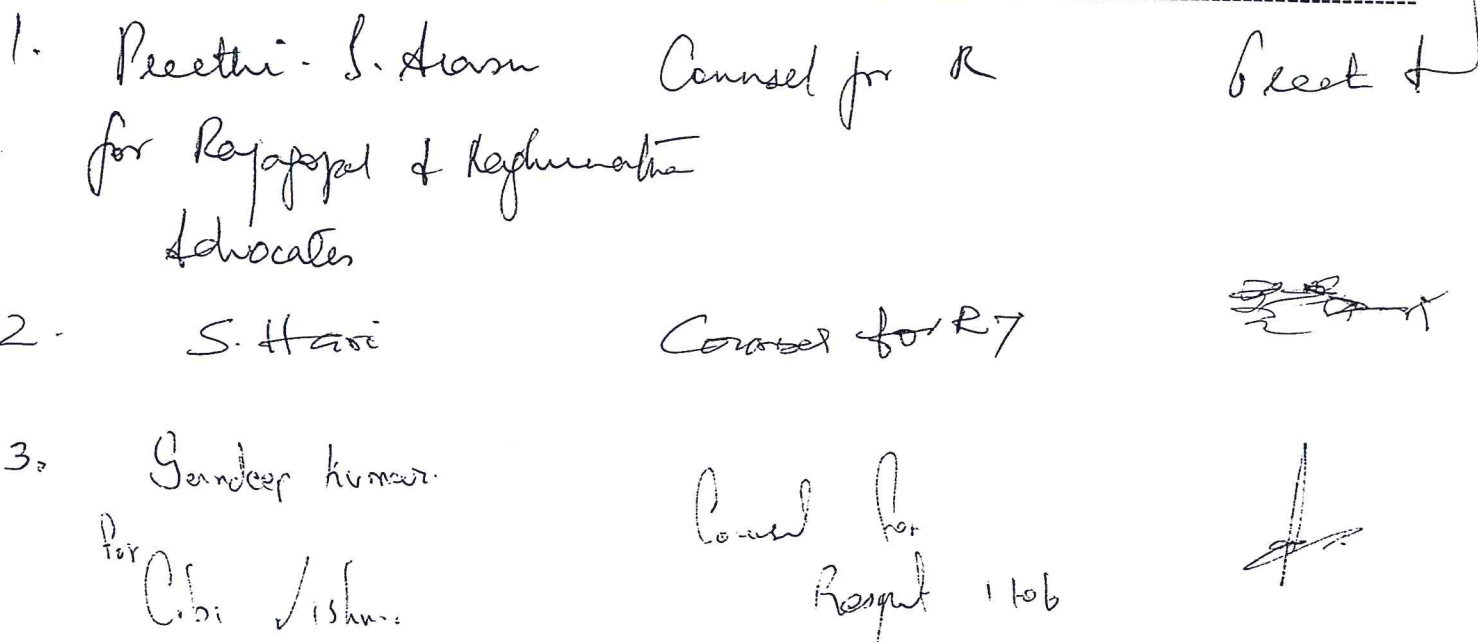 1. Preethi. S. Arasu Counsel for R
for Rajagopal & Raghunathan
Advocates
2. S. Hari Counsel for R7
3. Sandeep Kumar. Counsel for
for Cibi Vishnu. 1 to 6